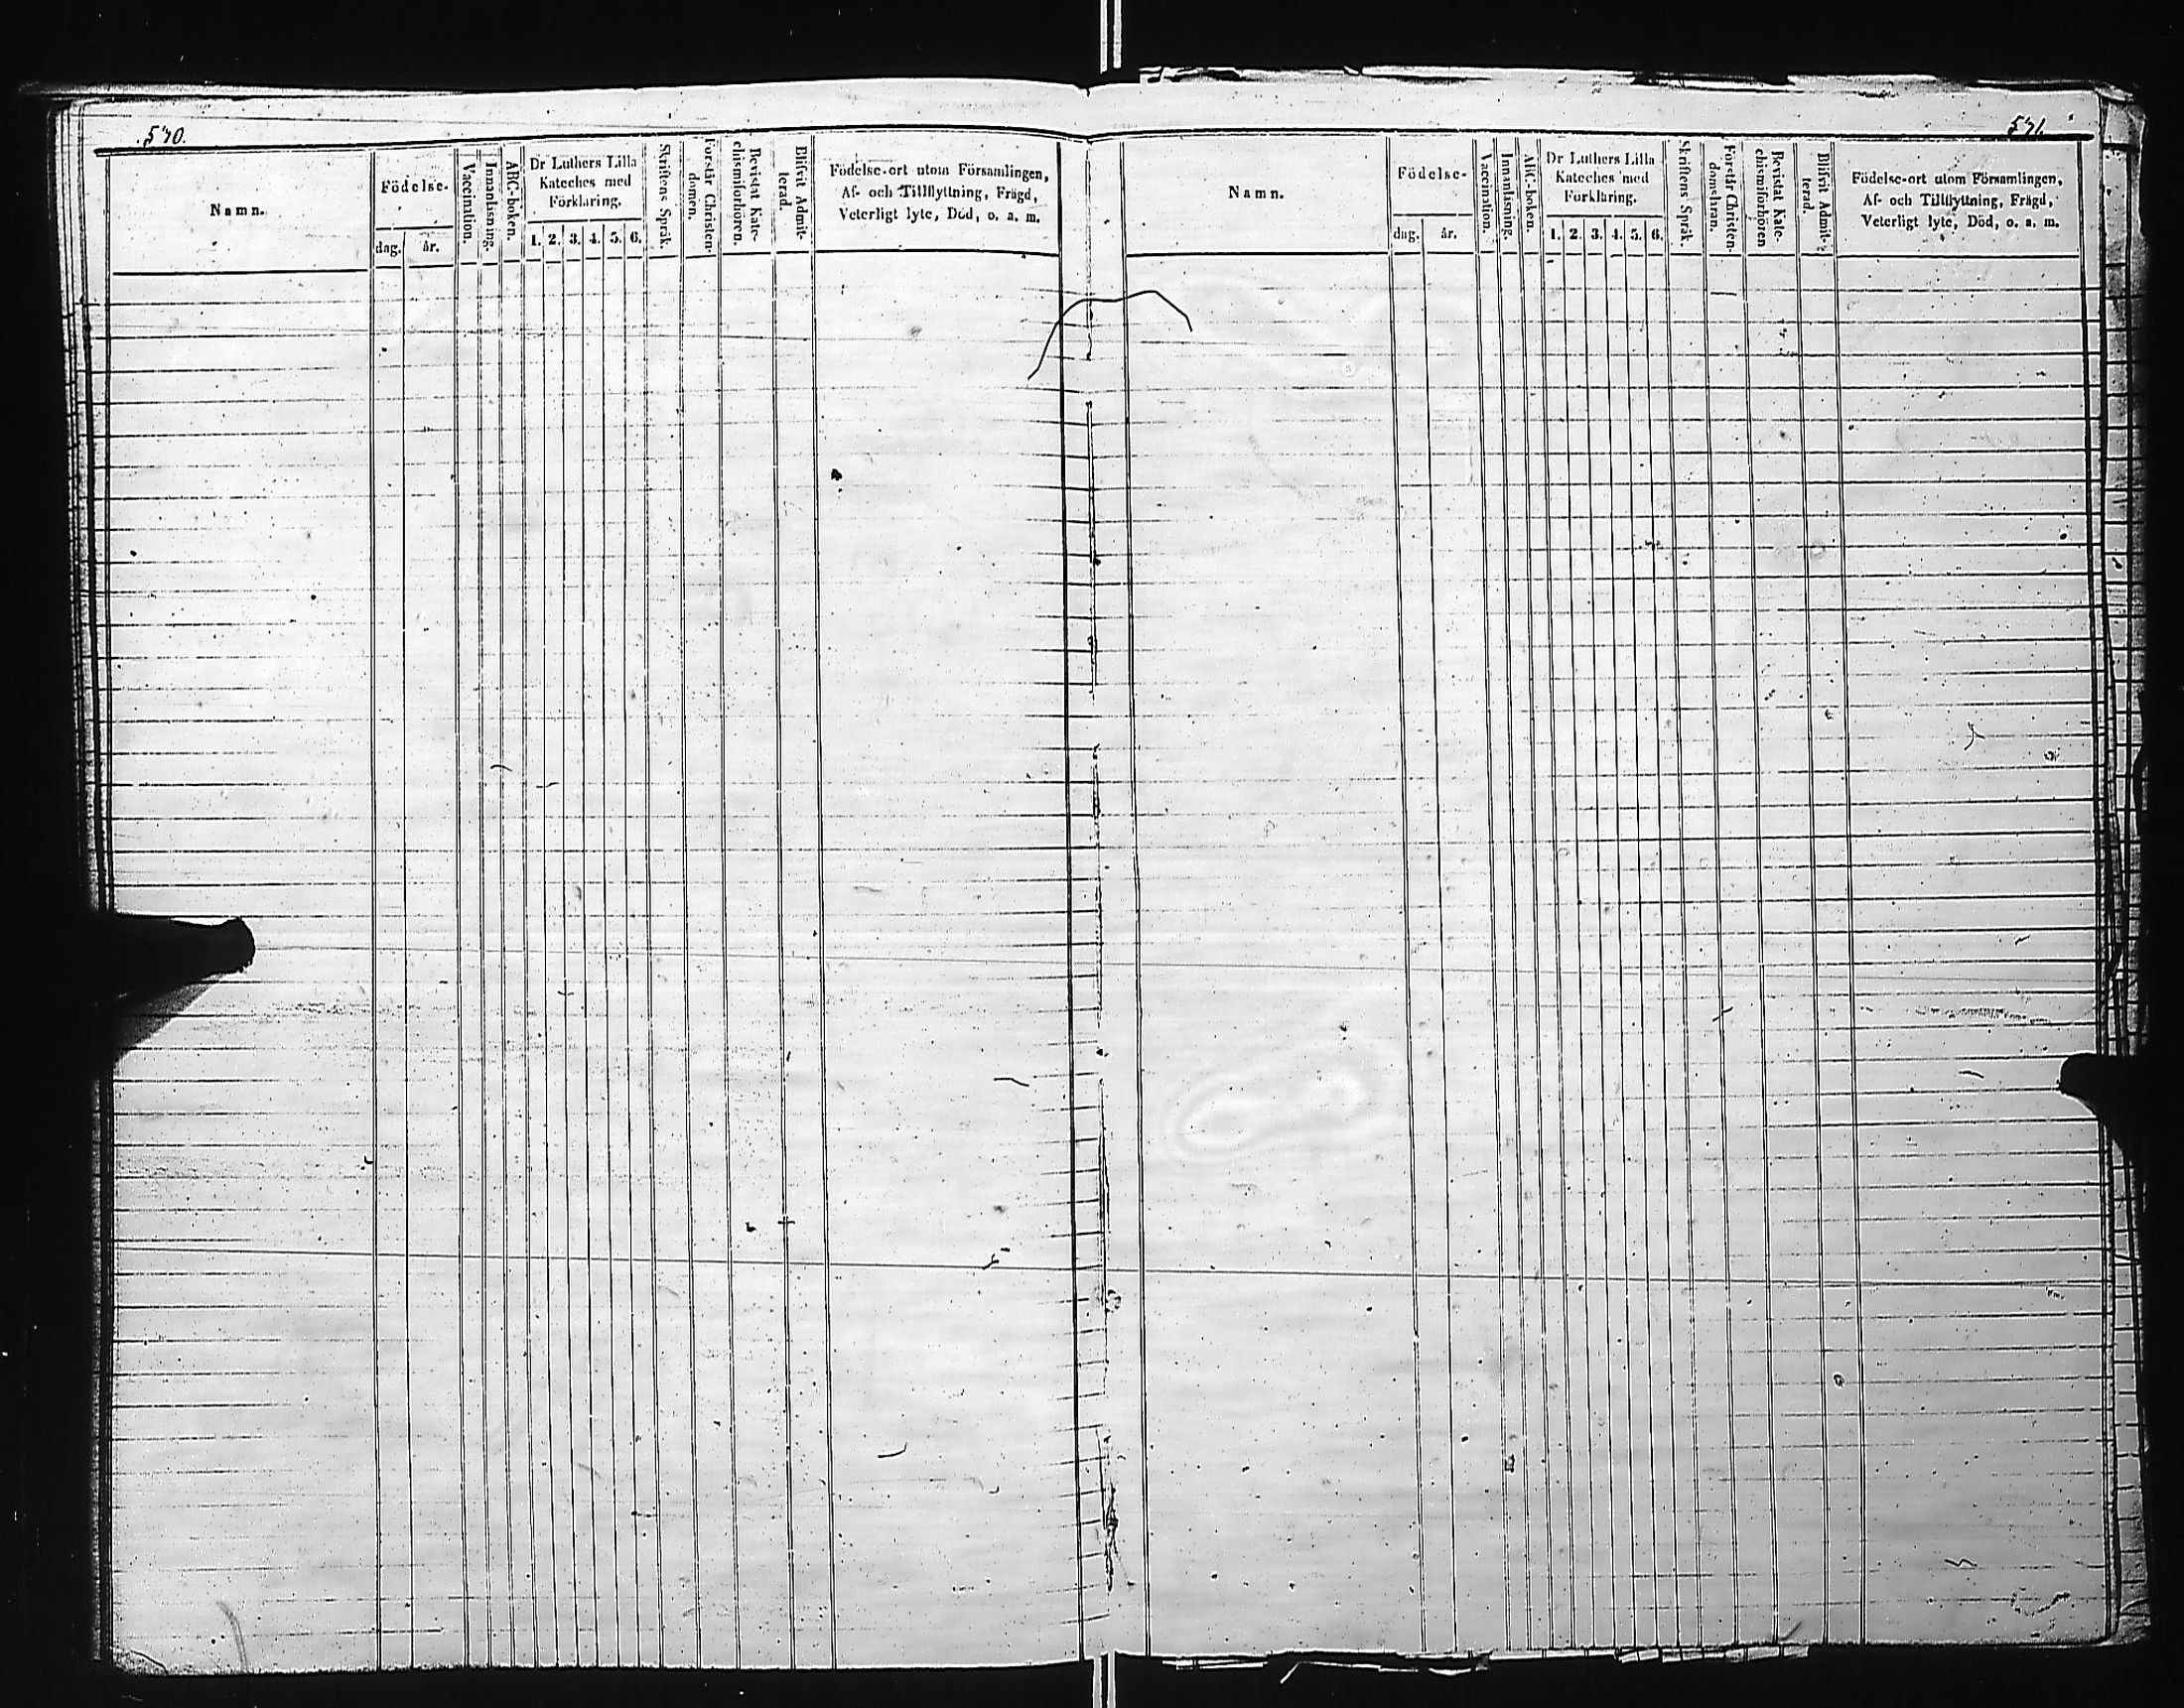 570.
Namn.
Födelse-
dag.
år.
Vaccination.
Innanläsning.
ABC-boken.
Dr Luthers Lilla
Kateches med
Förklaring.
1. 2. 3. 4. 5. 6.
Skriftens Språk.
Förstår Christen-
domen.
Bevistat Kate-
chismiförhören.
Blifvit Admit-
terad.
Födelse-ort utom Församlingen,
Af- och Tillflyttning, Frägd,
Veterligt lyte, Död, o. a. m.
571.
Namn.
Födelse-
dag.
år.
Vaccination.
Innanläsning.
ABC-boken.
Dr Luthers Lilla
Kateches med
Förklaring.
1. 2. 3. 4. 5. 6.
Skriftens Språk.
Förstår Christen-
domsläran.
Bevistat Kate-
chismiförhören
Blifvit Admit-
terad.
Födelse-ort utom Församlingen,
Af- och Tillflyttning, Frägd,
Veterligt lyte, Död, o. a. m.